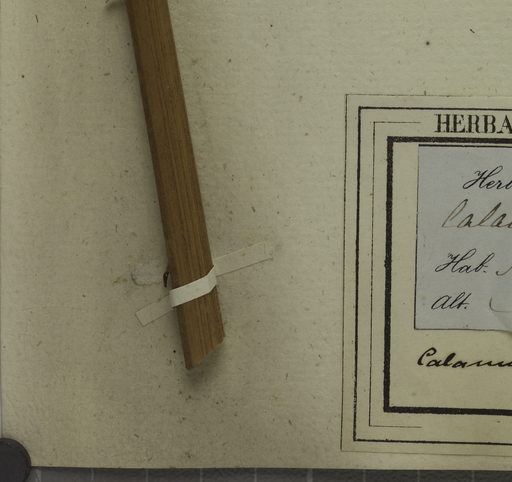 HERBA
Herb
Calam
Hab.
Alt.
Calamu